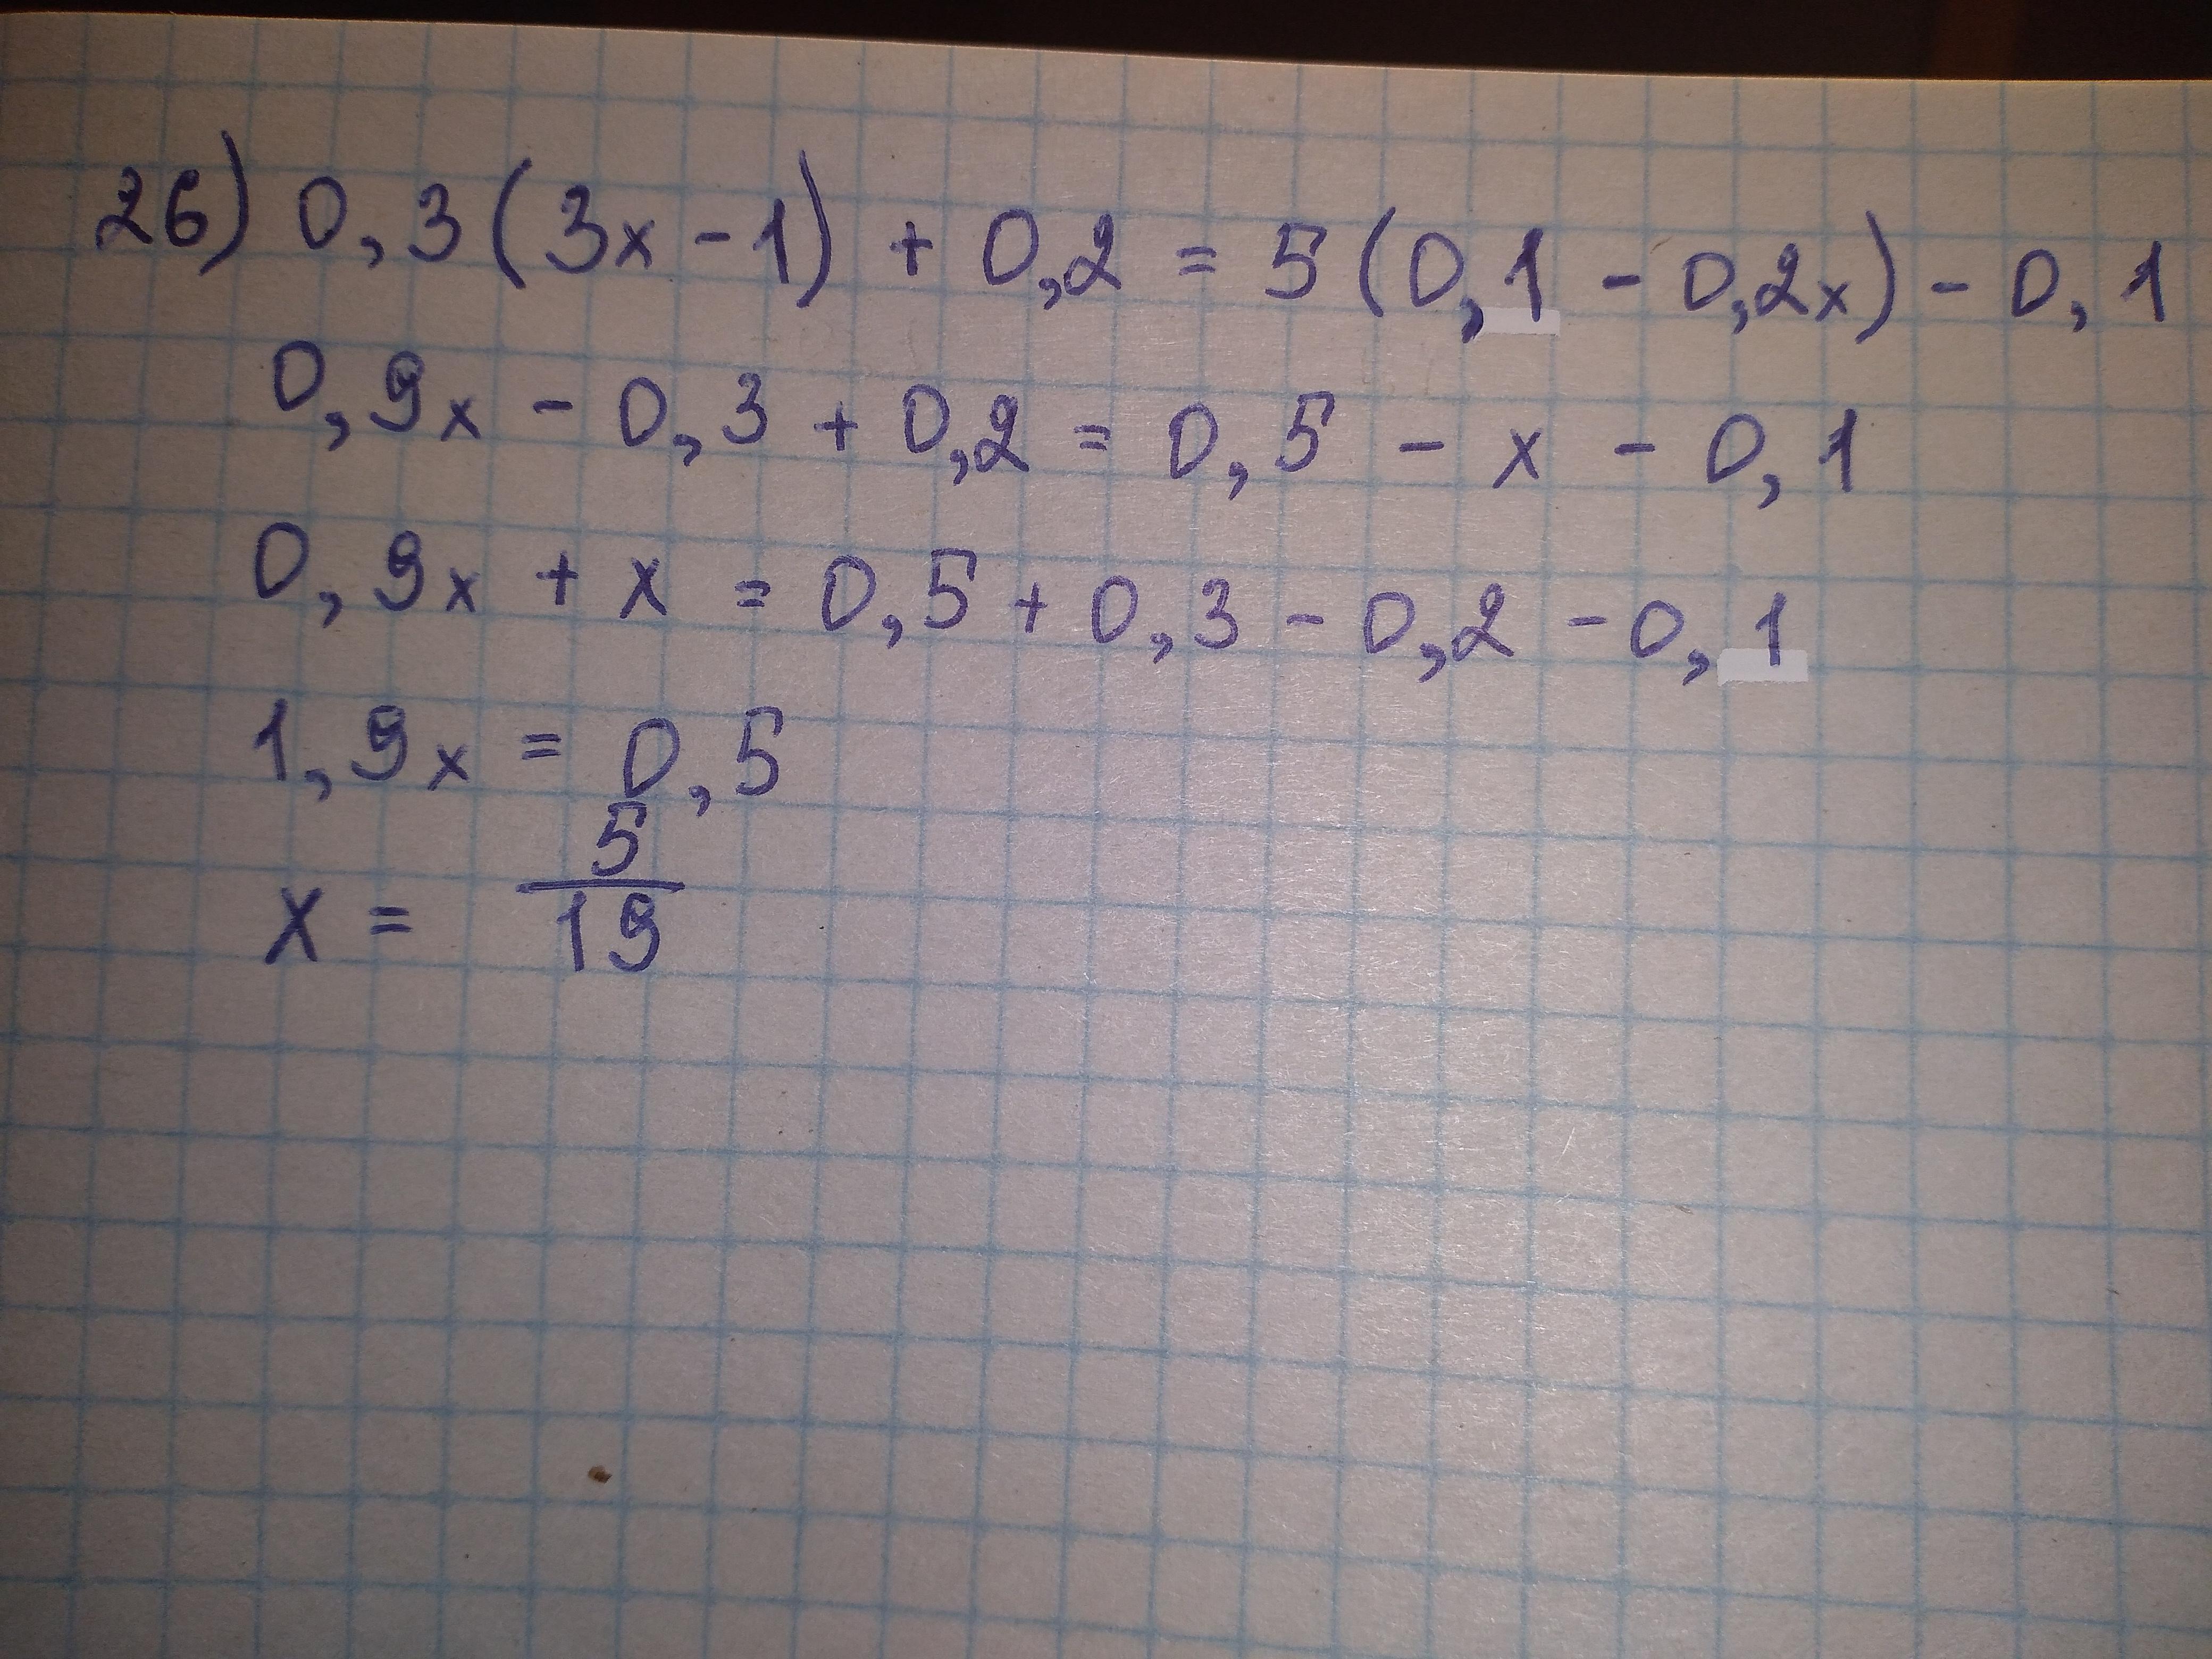 26) 0,3(3x-1) + 0,2 = 5(0,1 - 0,2x) - 0,1
0,9x - 0,3 + 0,2 = 0,5 - x - 0,1
0,9x + x = 0,5 + 0,3 - 0,2 - 0,1
1,9x = 0,5
x = 5/19